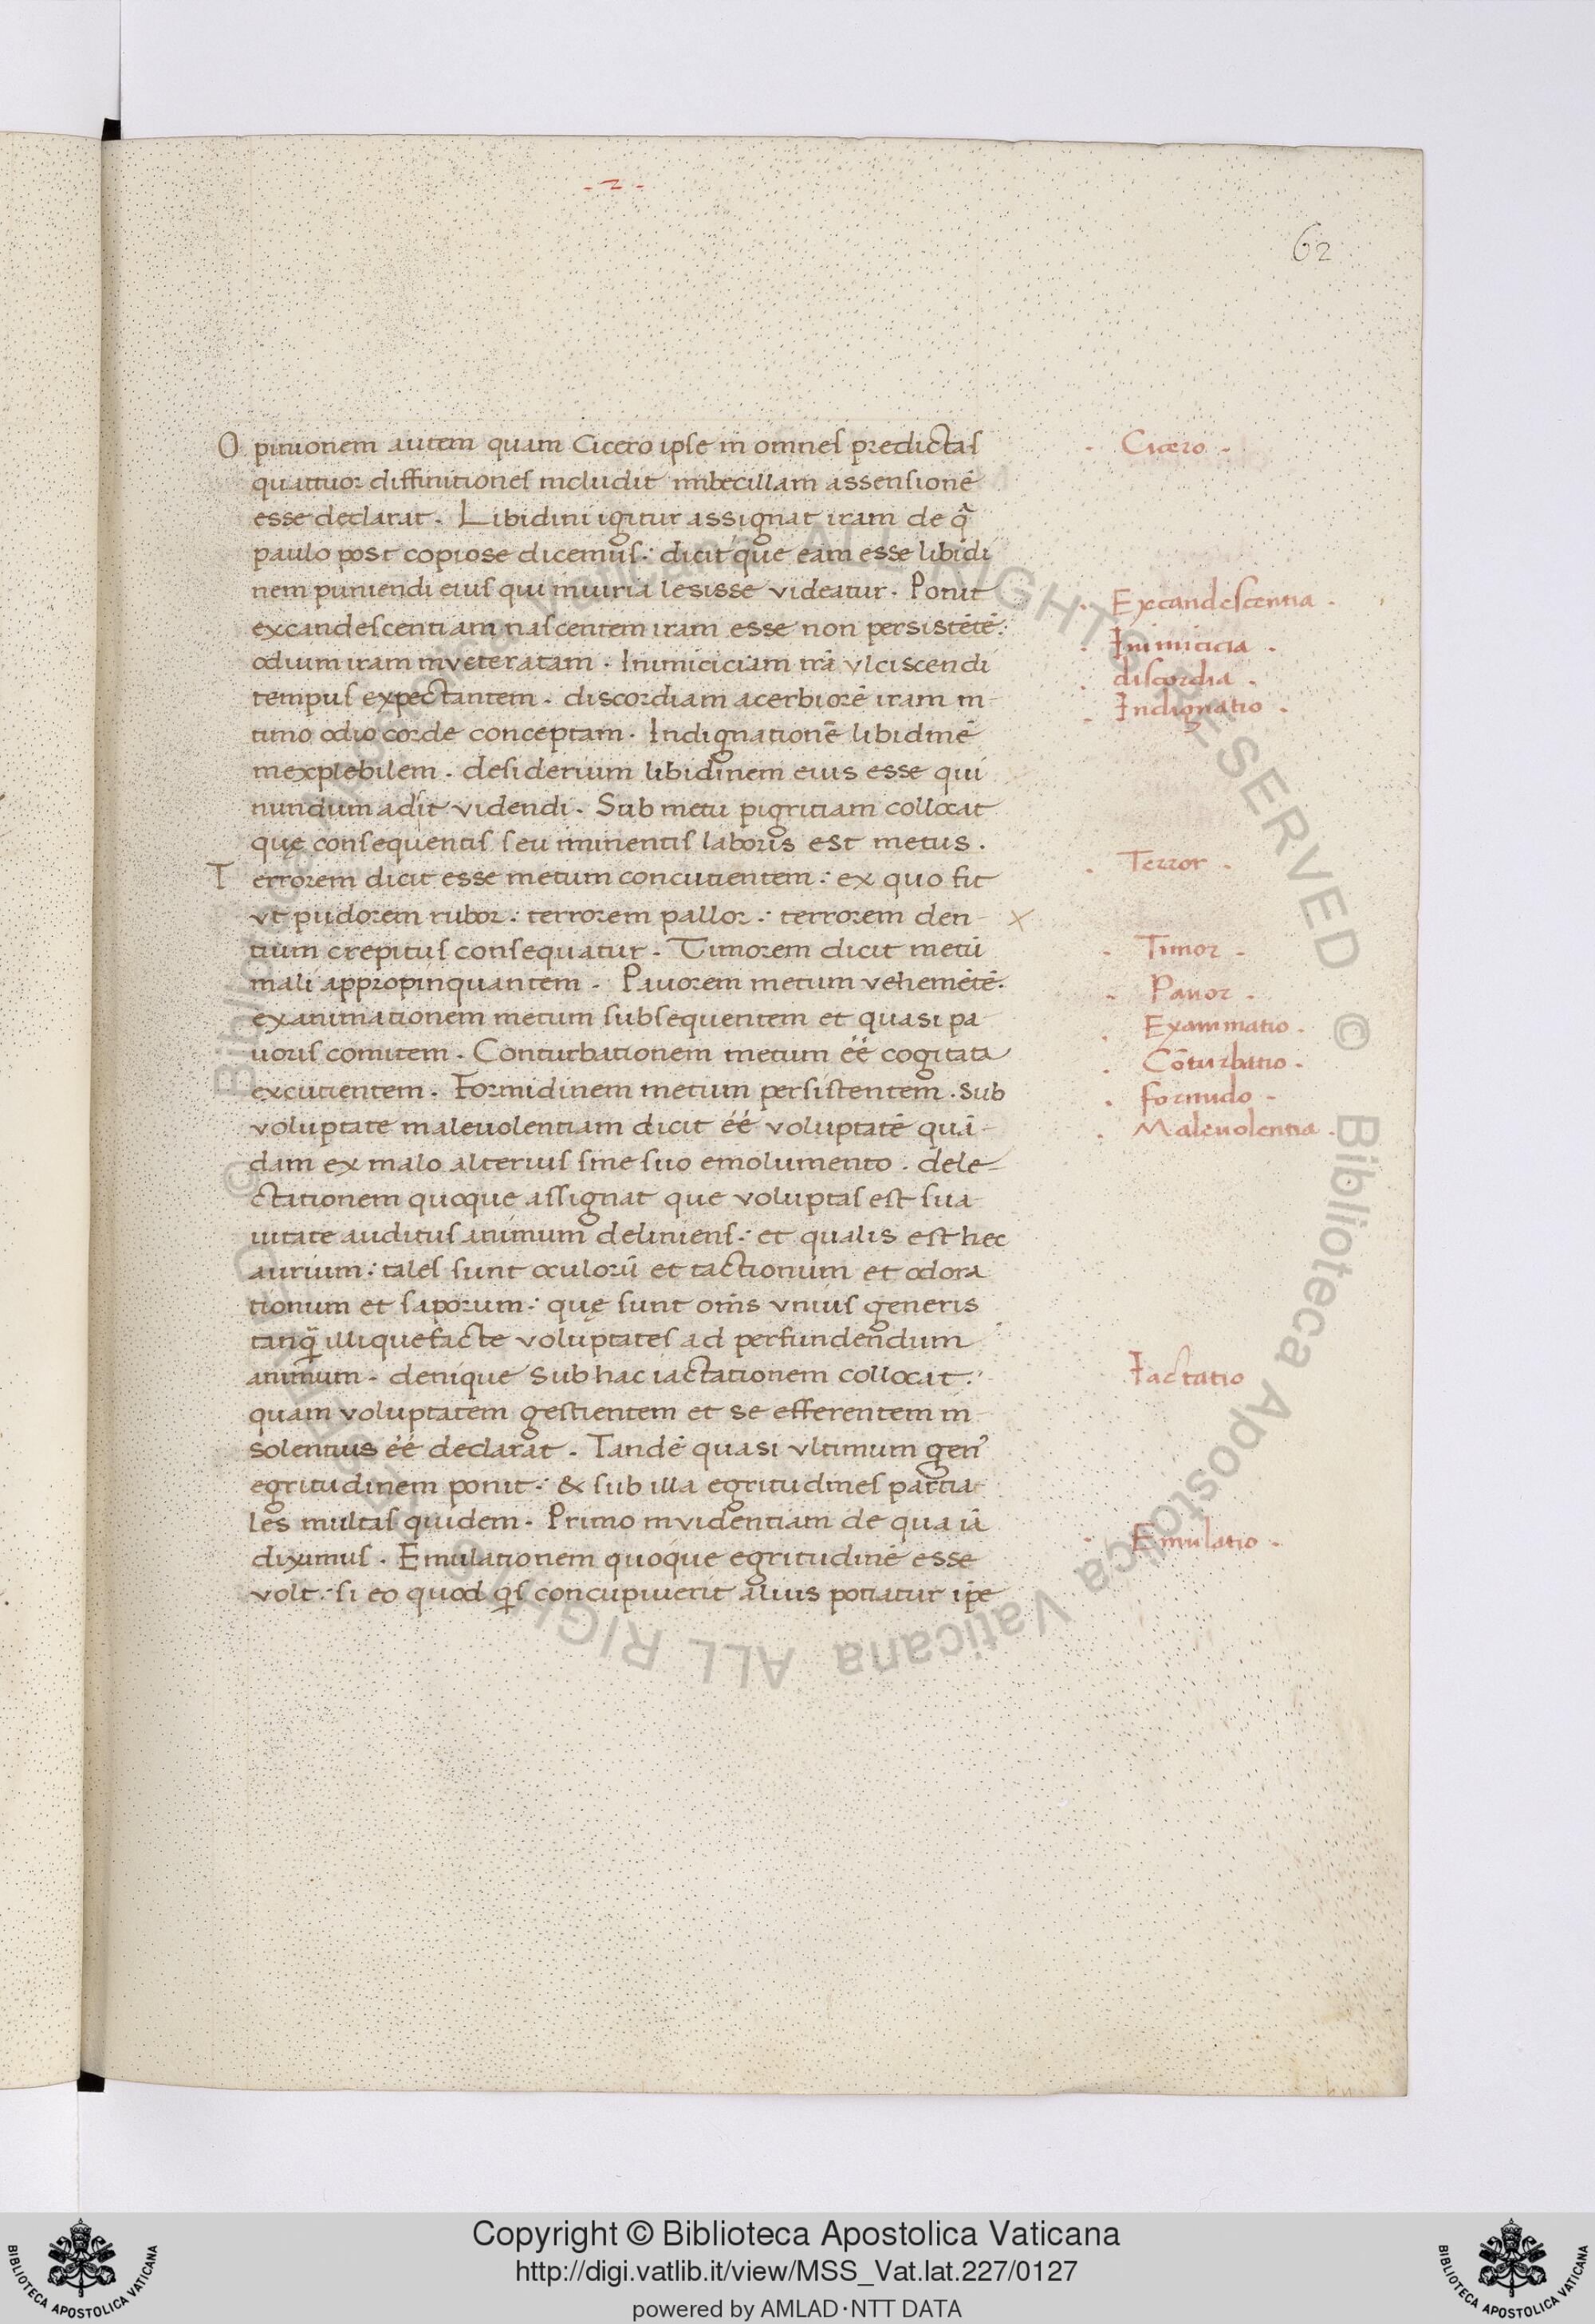 - 2 -
62
Opinionem autem quam Cicero ipse in omnes predictas
quattuor diffinitiones includit imbecillam assensionē
esse declarat. Libidini igitur assignat iram de q̄
paulo post copiose dicemus: dicit que eam esse libidi
nem puniendi eius qui iniuria lesisse videatur. Ponit
excandescentiam nascentem iram esse non persistētē:
odium iram inveteratam. Inimiciciam irā ulciscendi
tempus expectantem. discordiam acerbiorē iram in-
timo odio corde conceptam. Indignationē libidinē
inexplebilem. desiderium libidinem eius esse qui
nundum adsit videndi. Sub metu pigritiam collocat
quę consequentis seu iminentis laboris est metus.
Terrorem dicit esse metum concutientem: ex quo fit
vt pudorem rubor: terrorem pallor: terrorem den-
tium crepitus consequatur. Timorem dicit metū
mali appropinquantem. Pauorem metum vehemētē.
exanimationem metum subsequentem et quasi pa
uoris comitem. Conturbationem metum ēē cogitata
excutientem. Formidinem metum persistentem. Sub
voluptate maleuolentiam dicit ēē voluptatē quā-
dam ex malo alterius sine suo emolumento. dele-
ctationem quoque assignat que voluptas est sua
uitate auditus animum deliniens: et qualis est hec
aurium: tales sunt oculorū et tactionum et odora
tionum et saporum: quę sunt om̄s vnius generis
tanq̄ illiquefacte voluptates ad perfundendum
animum. denique sub hac iactationem collocat:
quam voluptatem gestientem et se efferentem in
solentius ēē declarat. Tandē quasi vltimum gen⁹
egritudinem ponit: & sub illa egritudines partia
les multas quidem. Primo invidentiam de qua iā
diximus. Emulationem quoque egritudinē esse
volt: si eo quod q̄s concupiuerit alius potiatur ip̄e
. Cicero .
. Excandescentia .
. Inimicicia .
. discordia .
. Indignatio .
. Terror .
. Timor .
. Pauor .
. Exanimatio .
. Cōturbatio .
. formido -
. Maleuolentia .
Iactatio
. Emulatio .
© Biblioteca Apostolica Vaticana ALL RIGHTS RESERVED
Copyright © Biblioteca Apostolica Vaticana
http://digi.vatlib.it/view/MSS_Vat.lat.227/0127
powered by AMLAD·NTT DATA
BIBLIOTECA APOSTOLICA VATICANA
BIBLIOTECA APOSTOLICA VATICANA